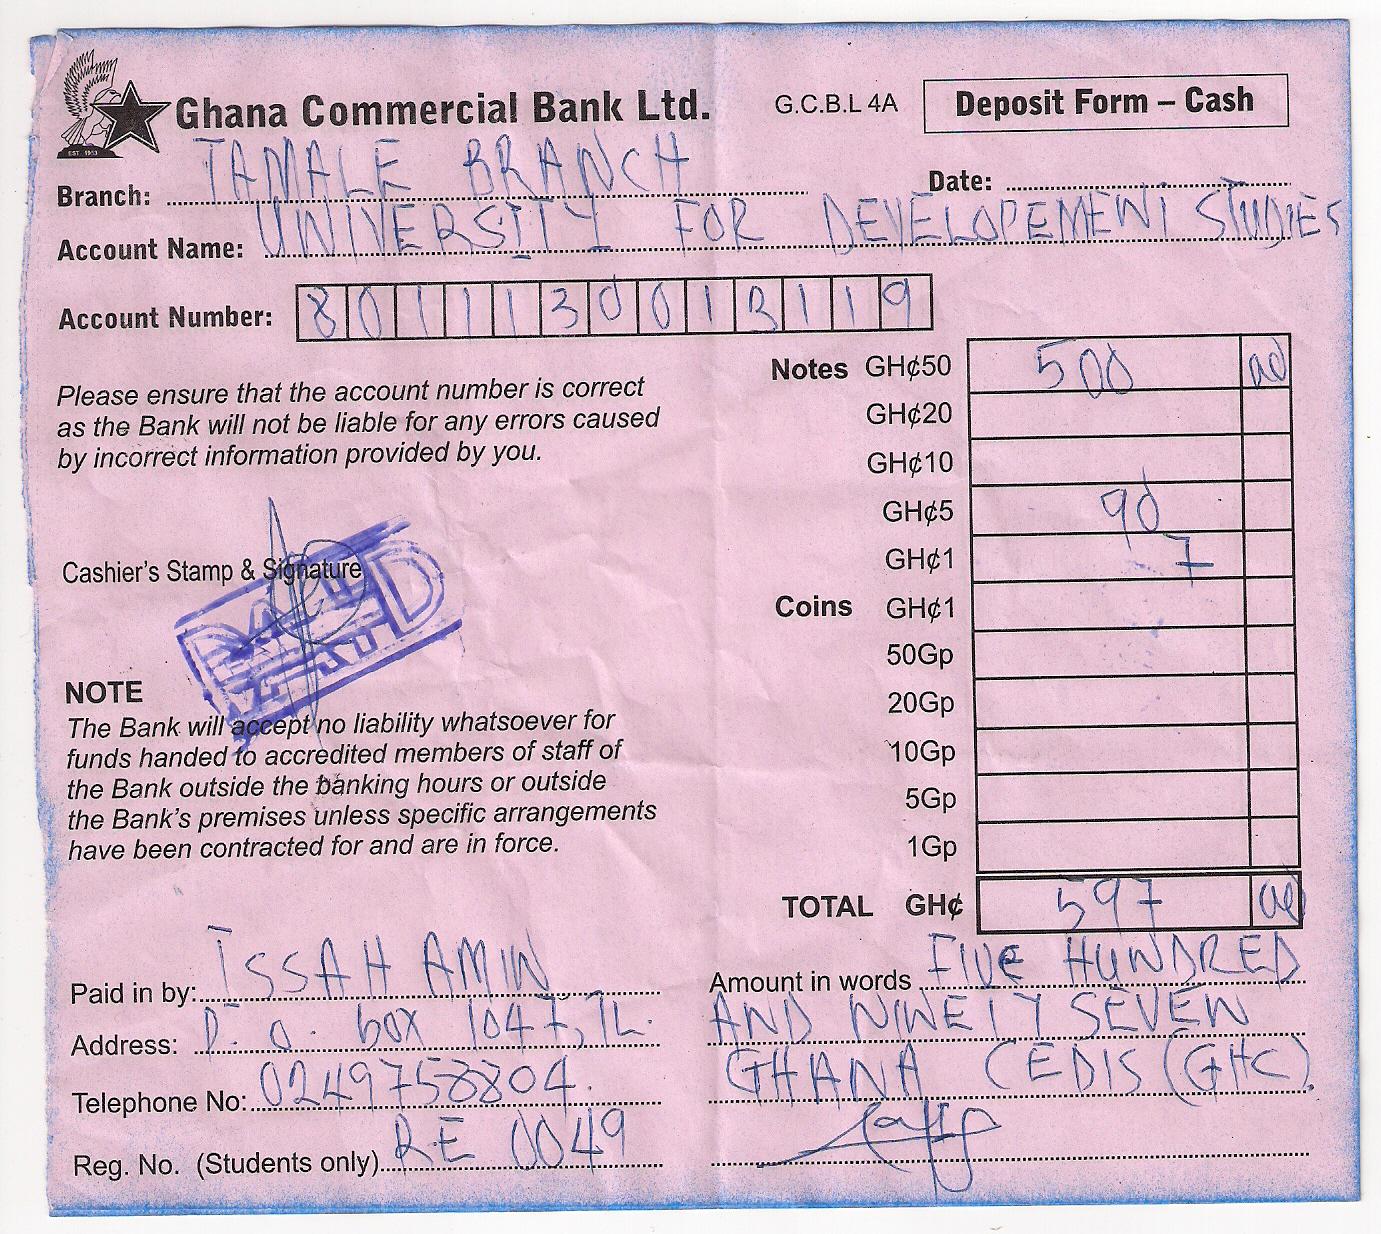 EST. 1953
Ghana Commercial Bank Ltd. G.C.B.L 4A Deposit Form – Cash
Branch: TAMALE BRANCH Date:
Account Name: UNIVERSITY FOR DEVELOPEMENT STUDIES
Account Number: 8011130013119
Notes GH¢50 500 00
Please ensure that the account number is correct
as the Bank will not be liable for any errors caused
by incorrect information provided by you.
GH¢20
GH¢10
GH¢5 90
GH¢1 7
Cashier's Stamp & Signature
Coins GH¢1
50Gp
20Gp
10Gp
5Gp
1Gp
NOTE
The Bank will accept no liability whatsoever for
funds handed to accredited members of staff of
the Bank outside the banking hours or outside
the Bank's premises unless specific arrangements
have been contracted for and are in force.
TOTAL GH¢ 597 00
Paid in by: ISSAH AMIN
Address: P. O. box 1047, TL.
Telephone No: 0249758804.
Reg. No. (Students only) RE 0049
Amount in words FIVE HUNDRED
AND NINETY SEVEN
GHANA CEDIS (GHC).